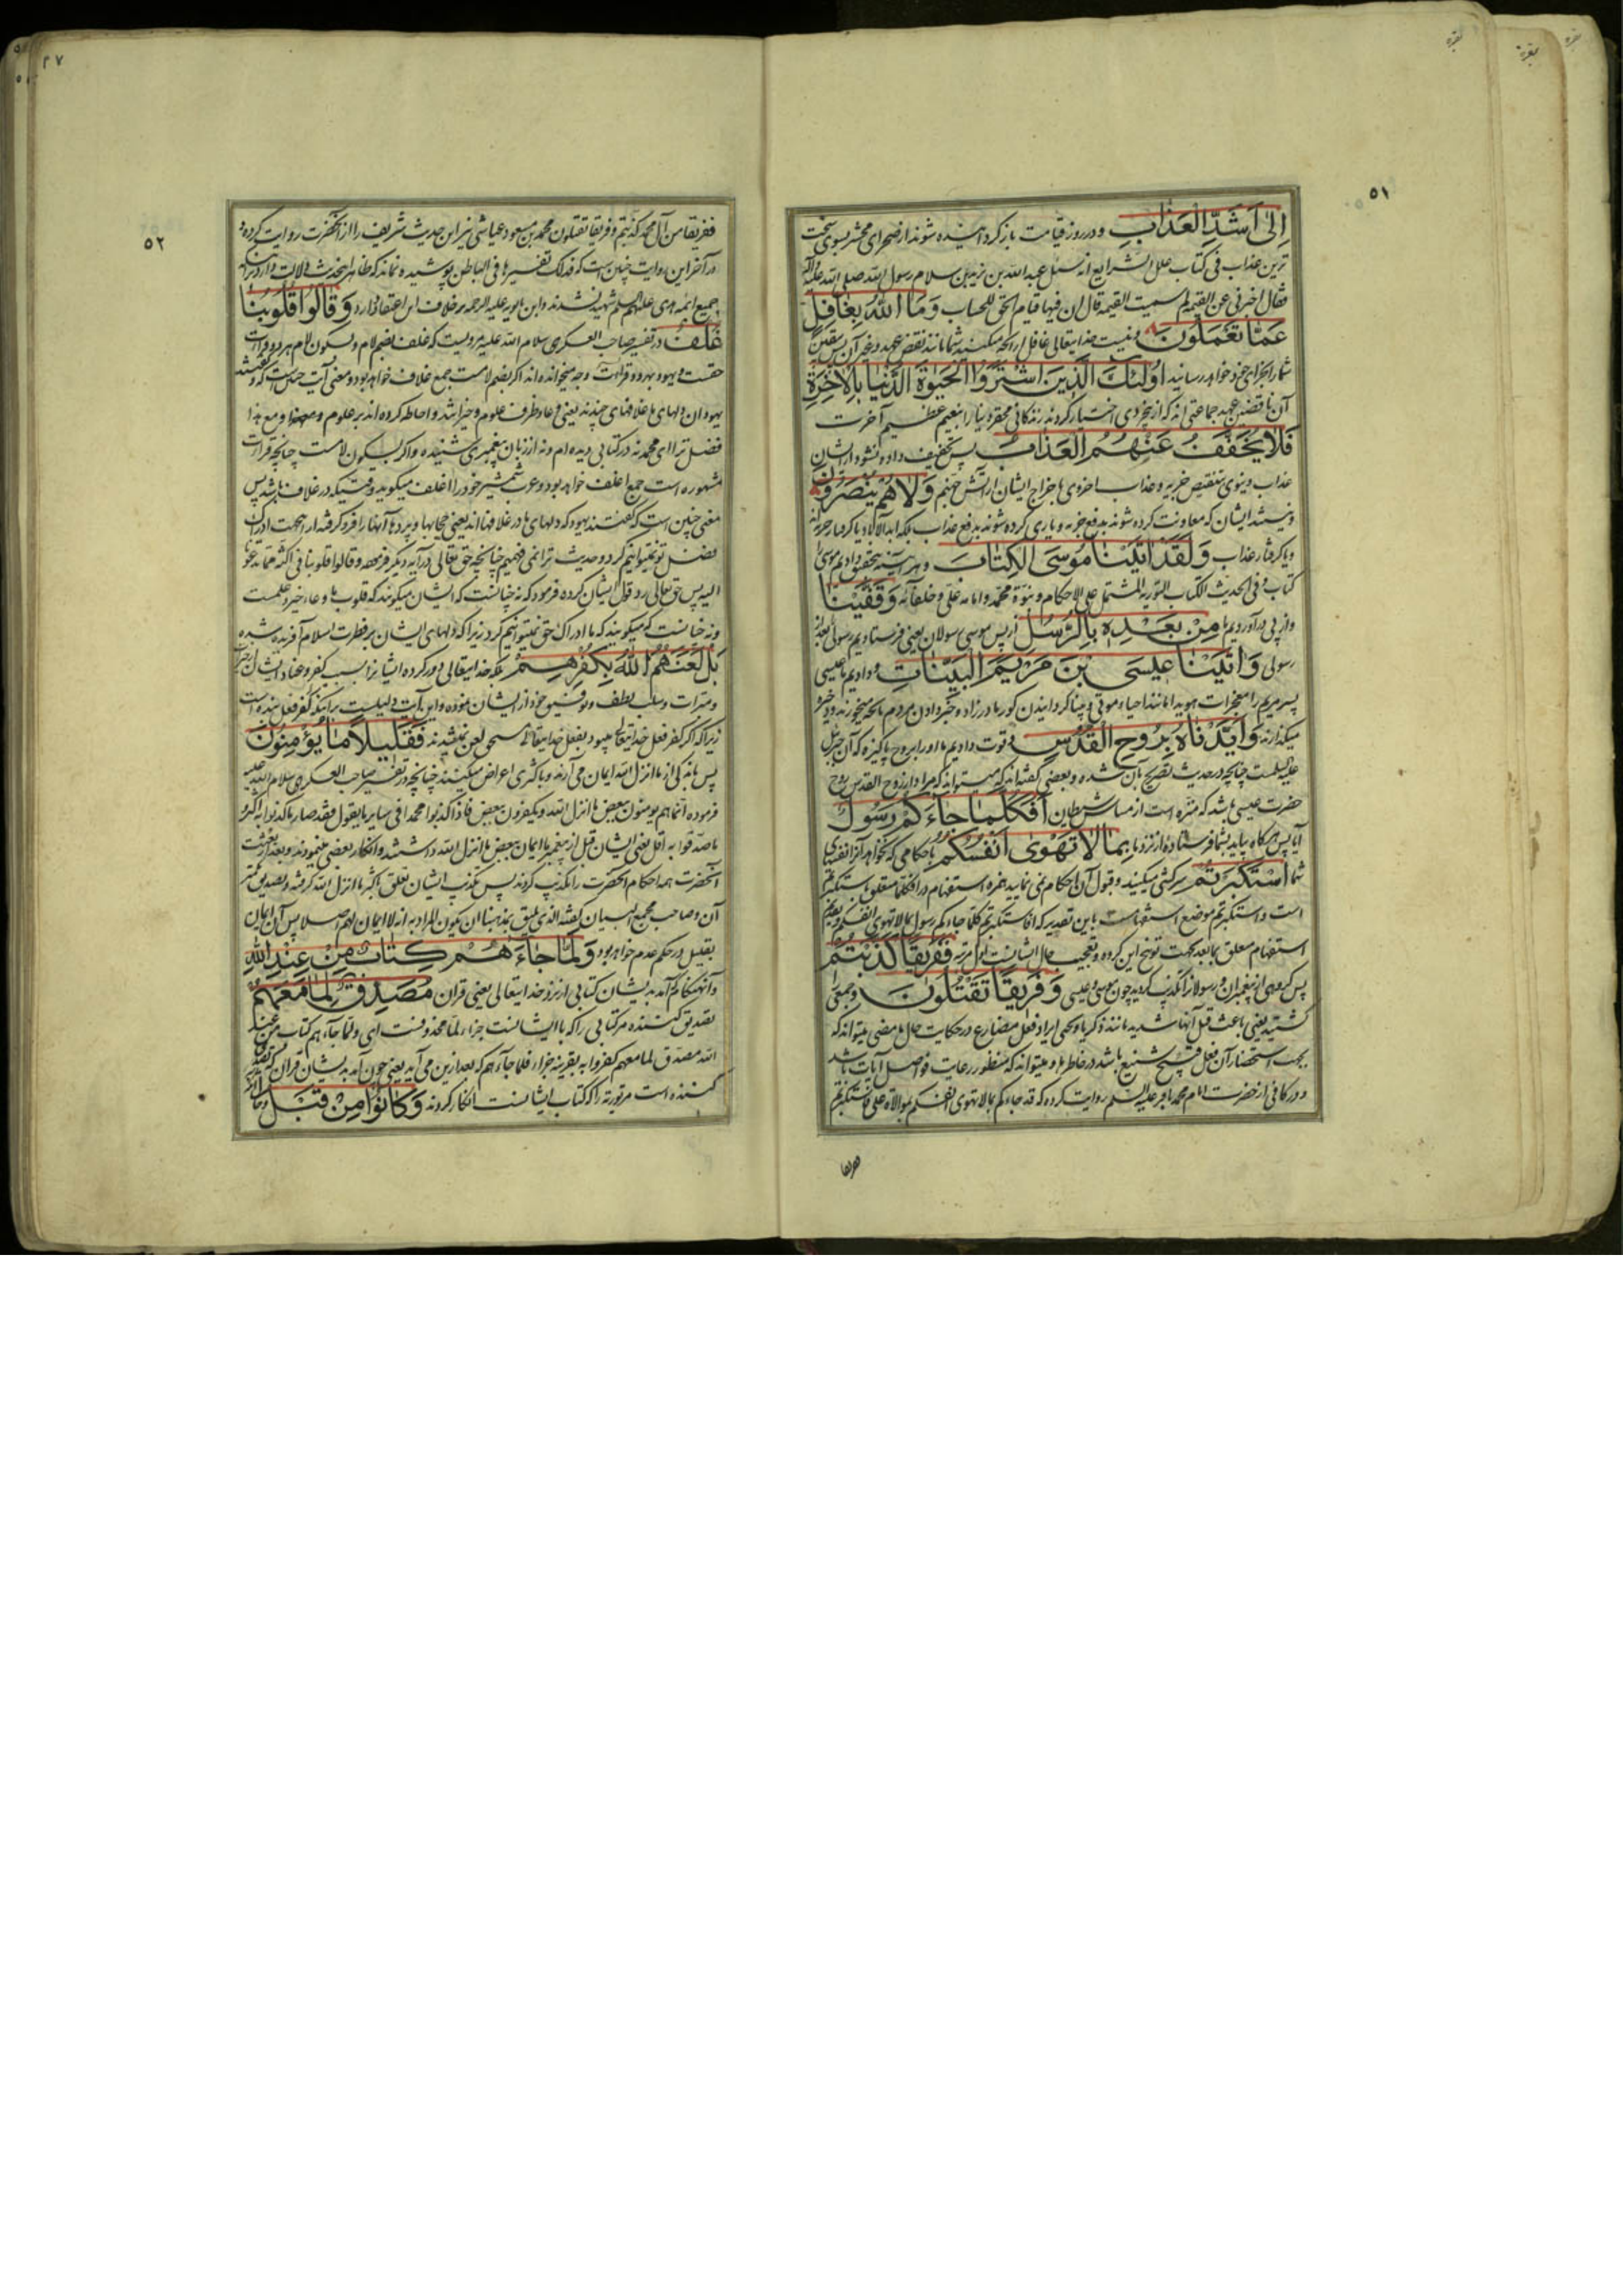 بقره
٥١
اِلىٰ اَشَدِّ الْعَذَابِ و در روز قیامت بازگردانیده شوند از صحرای محشر بسوی سخت
ترین عذاب فی کتاب علل الشرایع انه سئل عبد الله بن زید بن سلام رسول الله صلی الله علیه و اله
فقال اخبرنی عن القیمة لم سمیت القیمة قال ان فیها قیام الخلق للحساب وَمَا اللّٰهُ بِغَافِلٍ
عَمَّا تَعْمَلُونَ و نیست خدایتعالی غافل از آنچه میکنید شما مانند نقض عهد و غیر آن پس یقین
شما را بجزای خود خواهد رسانید اُولٰئِكَ الَّذِينَ اشْتَرَوُا الْحَيٰوةَ الدُّنْيَا بِالْاٰخِرَةِ
آن ناقضین عهد جماعتی اند که از بیخردی اختیار کردند زندگانی محقر دنیا را بنعیم عظیم آخرت
فَلَا يُخَفَّفُ عَنْهُمُ الْعَذَابُ پس تخفیف داده نشود از ایشان
عذاب دنیوی بتنقیص جزیه و عذاب اخروی باخراج ایشان از آتش جهنم وَلَا هُمْ يُنْصَرُونَ
و نیستند ایشان که معاونت کرده شوند بدفع جزیه و یاری کرده شوند بدفع عذاب بلکه ابد الآباد یا گرفتار جزیه اند
و یا گرفتار عذاب وَلَقَدْ اٰتَيْنَا مُوسَى الْكِتَابَ و هر آینه بتحقیق دادیم موسی را
کتاب و فی الحدیث الکتاب التوریة المشتمل علی الاحکام و نبوة محمد و امامة علی و خلفائه وَقَفَّيْنَا
و از پی در آوردیم ما مِنْ بَعْدِهٖ بِالرُّسُلِ از پس موسی رسولان یعنی فرستادیم رسولی بعد از
رسولی وَاٰتَيْنَا عِيسَى بْنَ مَرْيَمَ الْبَيِّنَاتِ و دادیم ما عیسی
پسر مریم را معجزات هویدا مانند احیاء موتی و بینا گردانیدن کور مادرزاد و خبر دادن مردم بآنچه میخورند و ذخیره
میگذارند وَاَيَّدْنَاهُ بِرُوحِ الْقُدُسِ و قوت دادیم ما او را بروح پاکیزه که آن جبرئیل
علیه السلمست چنانچه در حدیث تصریح بآن شده و بعضی گفته اند که میتواند که مراد از روح القدس روح
حضرت عیسی باشد که منزه است از مساس شیطان اَفَكُلَّمَا جَاءَكُمْ رَسُولٌ
آیا پس هرگاه بیاید بشما فرستاده از نزد ما بِمَا لَا تَهْوٰى اَنْفُسُكُمُ باحکامی که نخواهد آنرا نفسهای
شما اسْتَكْبَرْتُمْ سرکشی میکنید و قبول آن احکام نمی نمایید همزه استفهام در افکلما متعلق باستکبرتم
است و استکبرتم موضع استفهامست باین تقدیر که افاستکبرتم کلما جاءکم رسول بما لا تهوی انفسکم
استفهام متعلق بما بعد بجهت توبیخ این کرده و تعجیب حال ایشان فَفَرِيقًا كَذَّبْتُمْ
پس گروهی از پیغمبران و رسولان را تکذیب کردید چون موسی و عیسی وَفَرِيقًا تَقْتُلُونَ و جمعی را
کشتید یعنی باعث قتل آنها شدید مانند زکریا و یحیی ایراد فعل مضارع در حکایت حال ماضی میتواند که
بجهت استحضار آن فعل قبیح شنیع باشد در خاطرها و میتواند که منظور رعایت فواصل آیات باشد
و در کافی از حضرت امام محمد باقر علیه السلم روایت کرده که قد جاءکم بما لا تهوی انفسکم بموالاة علی فاستکبرتم
ففریقا
٥٢
ففریقا من آل محمد کذبتم و فریقا تقتلون محمد بن مسعود عیاشی نیز این حدیث شریف را از آنحضرت روایت کرده و
در آخر این روایت چنین است که فذلک تفسیرها فی الباطن پوشیده نماند که ظاهر این حدیث دلالت دارد بر آنکه
جمیع ائمه هدی علیهم السلم شهید نشدند و ابن بابویه علیه الرحمه بر خلاف این اعتقاد دارد وَقَالُوا قُلُوبُنَا
غُلْفٌ در تفسیر صاحب العسکری سلام الله علیه مرویست که غلف بضم لام و بسکون لام هر دو قراءت
حقست و یهود بهر دو قراءت و وجه میخوانده اند اگر بضم لامست جمع غلاف خواهد بود و معنی آیت چنین است که گفتند
یهودان دلهای ما غلافهای چندند یعنی وعاء و ظرف علوم و خیراتند و احاطه کرده اند بر علوم و مع هذا
فضل ترا ای محمد نه در کتابی دیده ام و نه از زبان پیغمبری شنیده و اگر بسکون لامست چنانچه قراءت
مشهوره است جمع اغلف خواهد بود و عرب شمشیر خود را اغلف میگوید وقتیکه در غلاف باشد پس
معنی چنین است که گفتند یهود که دلهای ما در غلافها اند یعنی حجابها و پردها آنها را فرو گرفته از این جهت ادراک
فضل تو نمیتوانیم کرد و حدیث ترا نمی فهمیم چنانچه حق تعالی در آیه دیگر فرموده و قالوا قلوبنا فی اکنة مما تدعونا
الیه پس حق تعالی رد قول ایشان کرده فرمود که نه چنانست که ایشان میگویند که قلوب ما وعاء خیر و علمست
و نه چنانست که میگویند که ما ادراک حق نمیتوانیم کرد زیرا که دلهای ایشان بر فطرت اسلام آفریده شده
بَلْ لَعَنَهُمُ اللّٰهُ بِكُفْرِهِمْ بلکه خدایتعالی دور کرده ایشانرا بسبب کفر و عناد ایشان از
و مبرات و سلب لطف و توفیق خود از ایشان نموده و این آیت دلیلیست بر آنکه کفر فعل بنده است
زیرا که اگر کفر فعل خدایتعالی میبود بفعل خدایتعالی مستحق لعن نمیشدند فَقَلِيلًا مَا يُؤْمِنُونَ
پس باندکی از ما انزل الله ایمان می آرند و باکثری اعراض میکنند چنانچه در تفسیر صاحب العسکری سلام الله علیه
فرموده انما هم یؤمنون ببعض ما انزل الله و یکفرون ببعض فاذا کذبوا محمدا فی سایر ما یقول فقد صار ما کذبوا به اکثر و
ما صدقوا به اقل یعنی ایشان قبل از پیغمبر ما ایمان ببعض ما انزل الله داشتند و انکار بعضی مینمودند و بعد از بعثت
آنحضرت همه احکام آنحضرت را تکذیب کردند پس تکذیب ایشان تعلق باکثر ما انزل الله گرفته و تصدیق کمتر
آن و صاحب مجمع البیان گفته الذی یلیق بمذهبنا ان یکون المراد به انه لا ایمان لهم اصلا پس آن ایمان
بقلیل در حکم عدم خواهد بود وَلَمَّا جَاءَهُمْ كِتَابٌ مِنْ عِنْدِ اللّٰهِ
و آنهنگام که آمد بدیشان کتابی از نزد خدایتعالی یعنی قرآن مُصَدِّقٌ لِمَا مَعَهُمْ
تصدیق کننده مر کتابی را که با ایشانست جزاء لما محذوفست ای و لما جاءهم کتاب من عند
الله مصدق لما معهم کفروا به بقرینه جزاء فلما جاءهم که بعد ازین می آید یعنی چون آمد بدیشان قرآن که تصدیق
کننده است مر توریة را که کتاب ایشانست انکار کردند وَكَانُوا مِنْ قَبْلُ